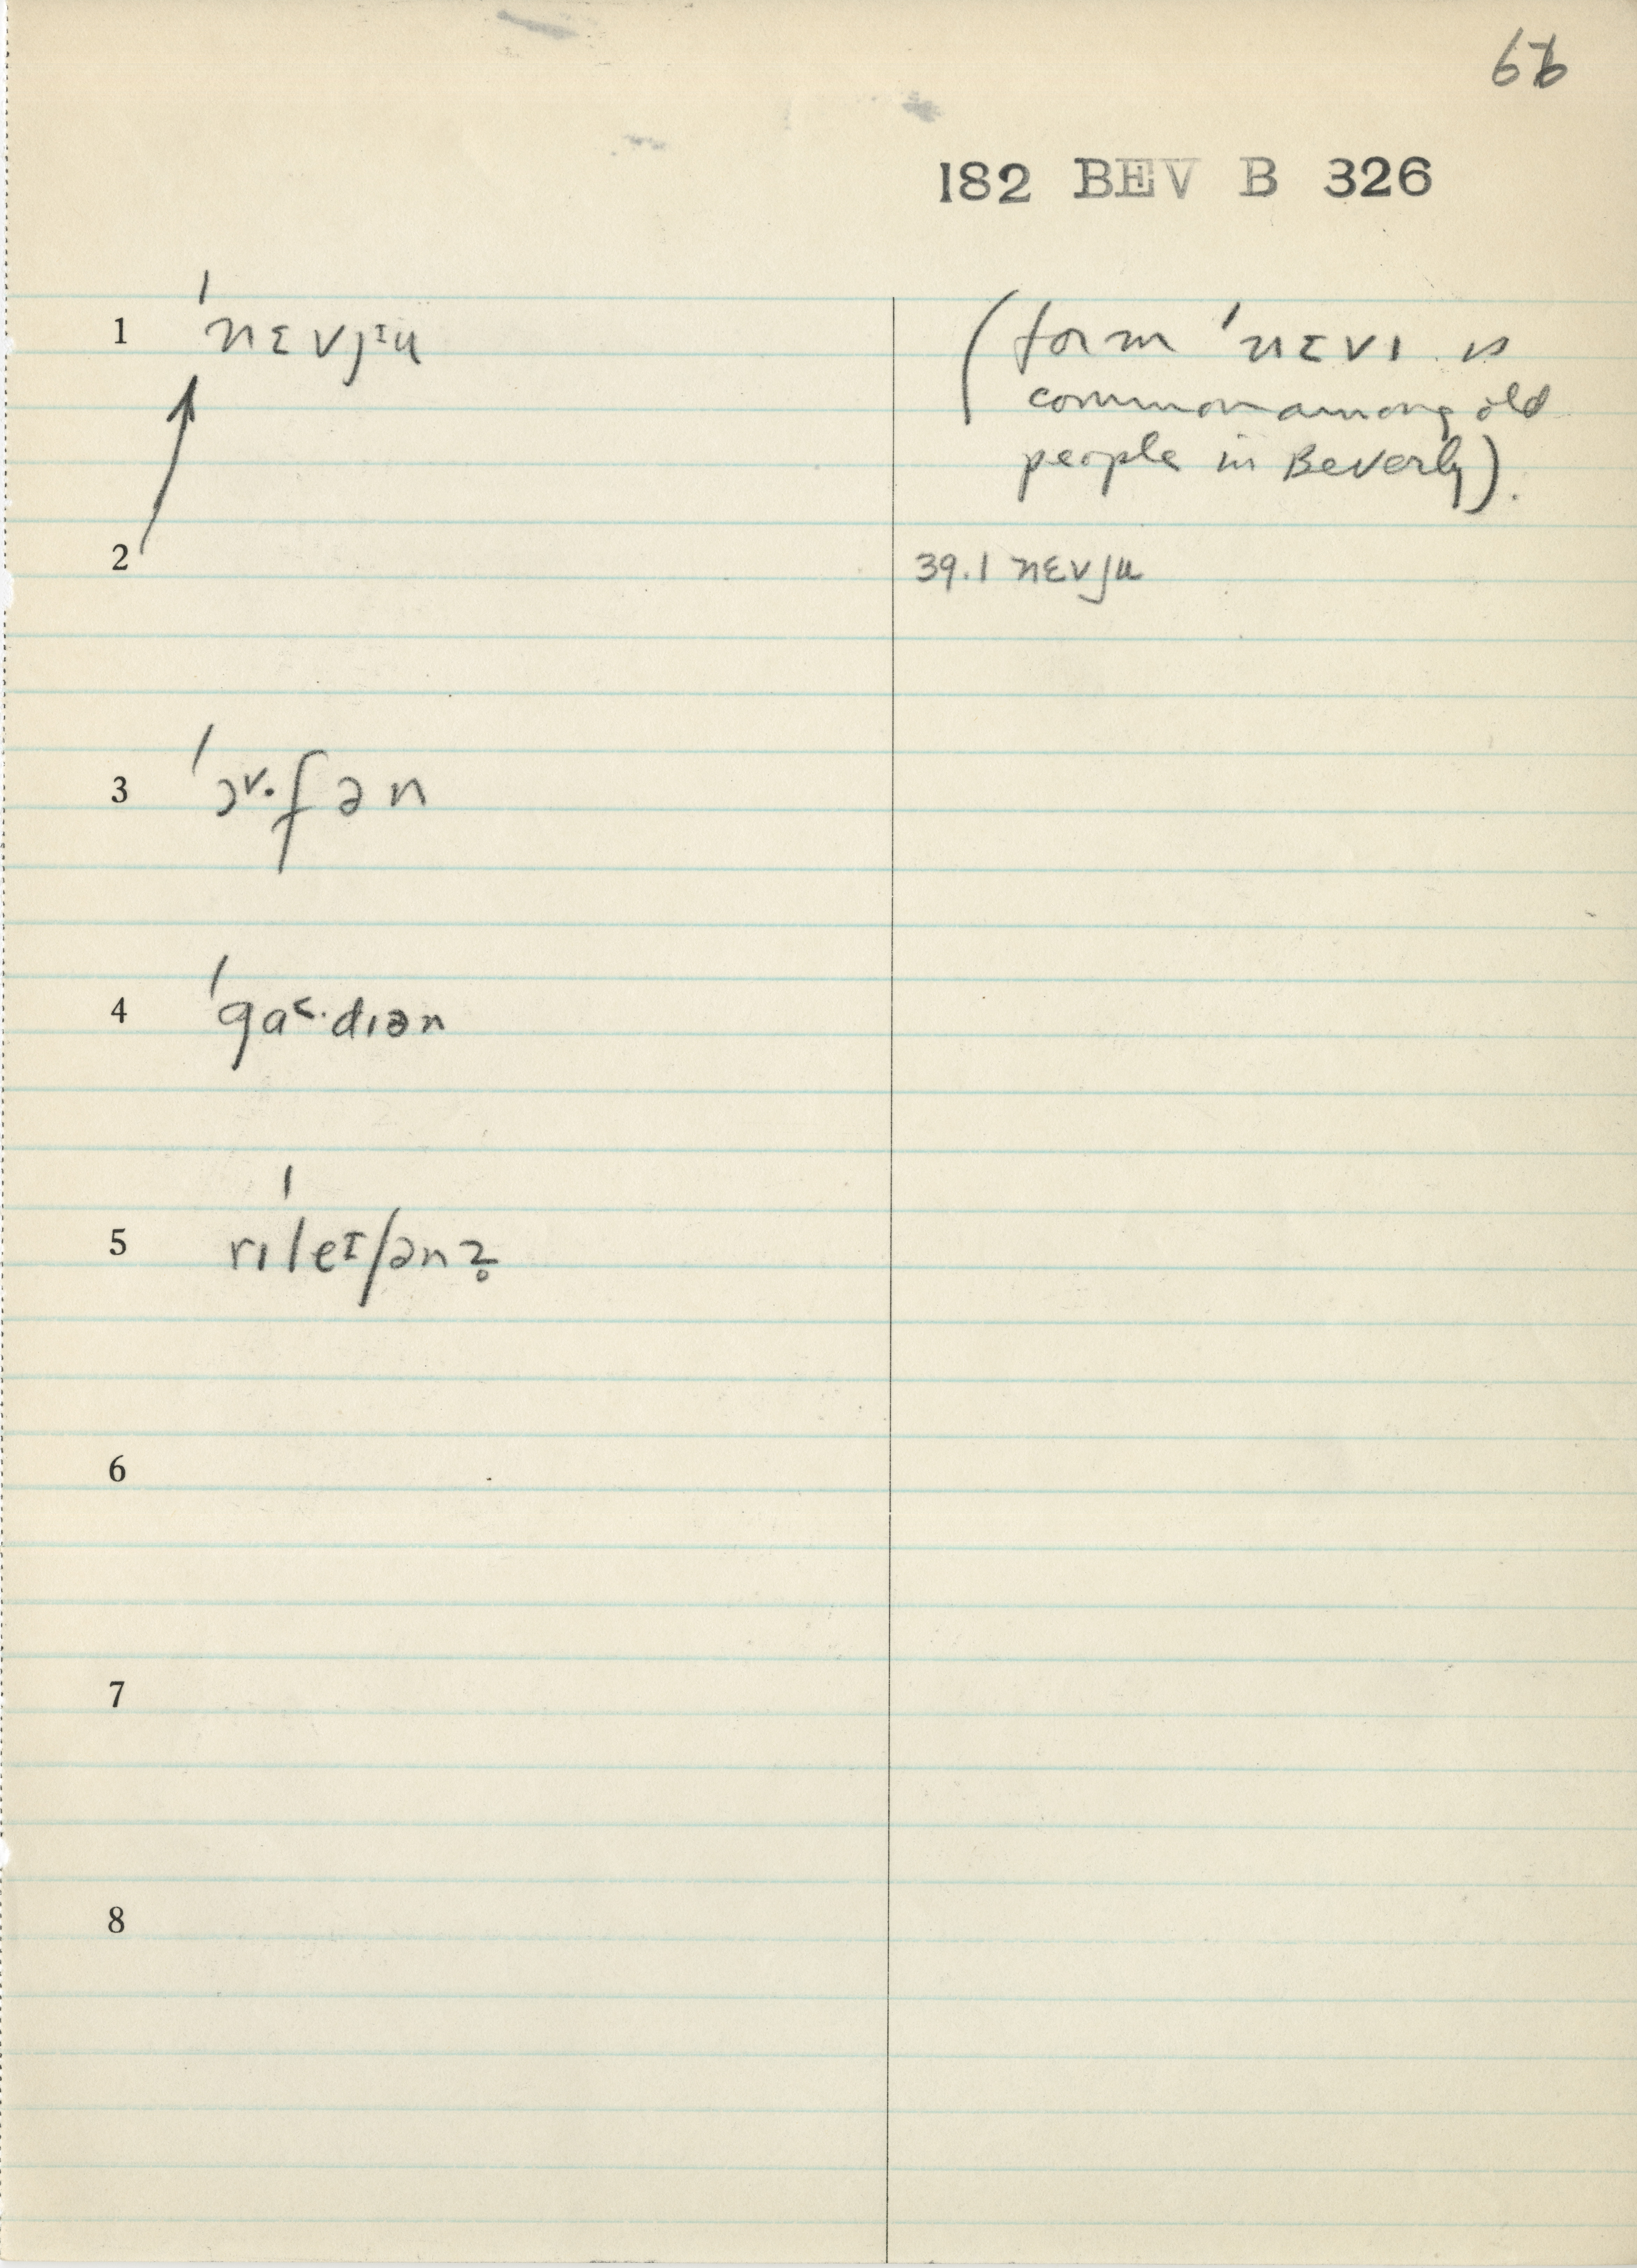 182 BEV B 326
1 ˈnɛvjᶦu
(form ˈnɛvɪ is
common among old
people in Beverly).
2
39.1 nɛvju
3 ˈɔ˅·fən
4 ˈga˂·dɪən
5 rɪˈleᶦʃənz̥
6
7
8